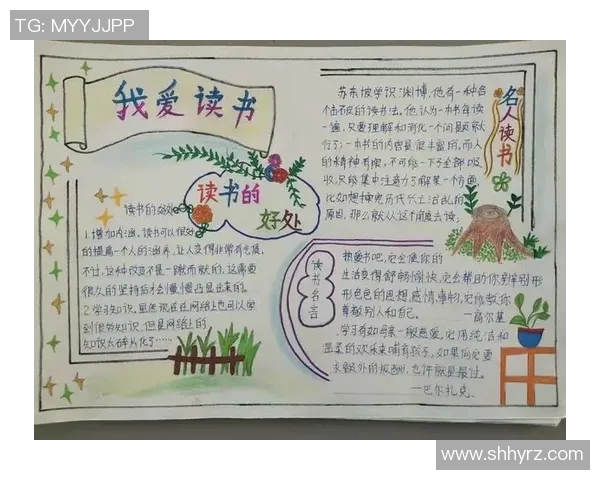 TG: MYYJJPP
我爱读书
读书的
好处
读书的好处
1.增加内涵。读书可以很好
的提高一个人的涵养,让人变得非常有气质。
不过,这种改变不是一蹴而就的,这需要
很久的坚持后才会慢慢凸显出来的。
2.学习知识。虽然现在在网络上也可以学
到很多知识,但是网络上的
知识太碎片化了……
苏东坡学识渊博,他有一种各
个击破的读书法。他认为一本书每读
一遍,只要理解和消化一个问题就
行了;一本书的内容是很丰富的,而人
的精神有限,不可能一下子全部吸
收,只能集中注意力了解某一个方面
比如想探究历代兴亡治乱的
原因,那么就从这个角度去读。
名人读书
读书名言
热爱书吧,它会使你的
生活变得舒畅愉快,它会帮助你辨别形
形色色的思想、感情、事物,它能教你
尊敬别人和自己。
—高尔基
学习有如母亲一般慈爱,它用纯洁和
温柔的欢乐来哺育孩子,如果向它要
求额外的报酬,也许就是罪过。
—巴尔扎克
www.shhyrz.com